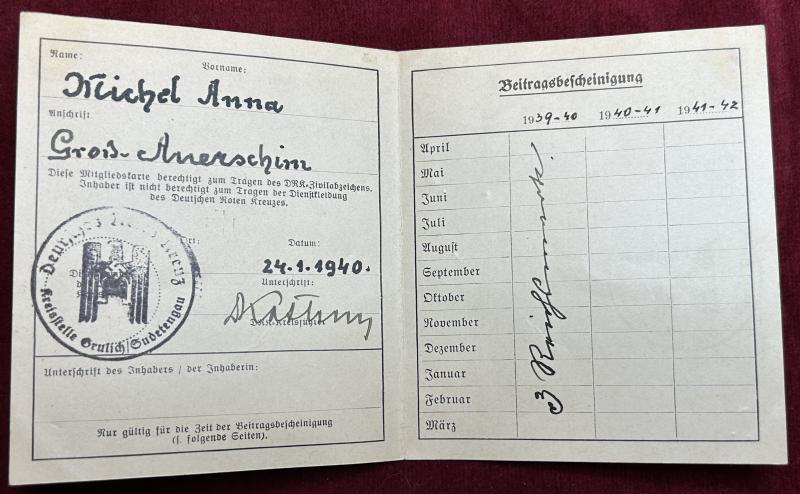 Name:
Vorname:
Michel Anna
Anschrift
Groß-Auerschim
Diese Mitgliedskarte berechtigt zum Tragen des DRK-Zivilabzeichens.
Inhaber ist nicht berechtigt zum Tragen der Dienstkleidung
des Deutschen Roten Kreuzes.
Ort:
Datum:
24.1.1940.
Unterschrift:
DRK-Kreisführer
Deutsches Rotes Kreuz
Kreisstelle Grulich/Sudetengau
Unterschrift des Inhabers / der Inhaberin:
Nur gültig für die Zeit der Beitragsbescheinigung
(s. folgende Seiten).
Beitragsbescheinigung
1939-40 1940-41 1941-42
April
Mai
Juni
Juli
August
September
Oktober
November
Dezember
Januar
Februar
März
3 Reichsmark.